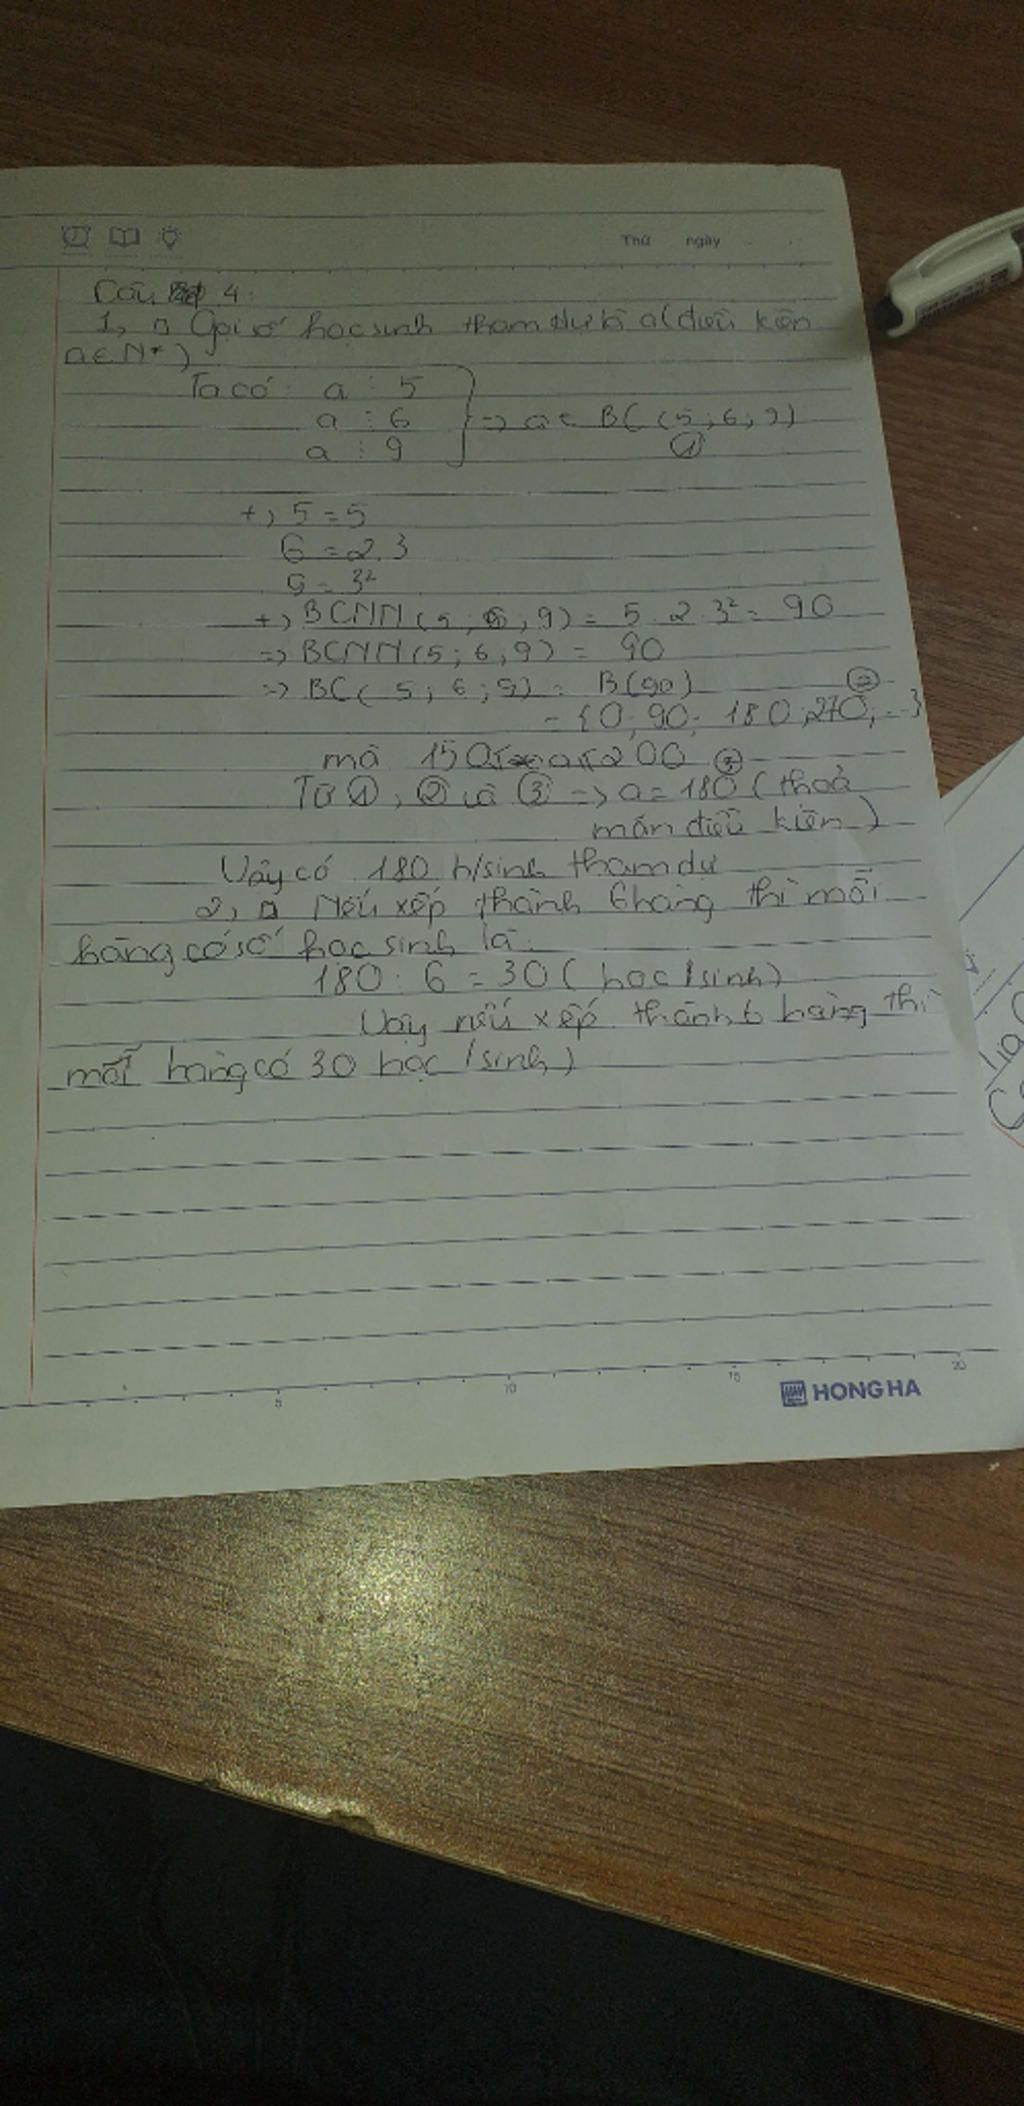 Thứ ngày
Câu 4:
1, Gọi số học sinh tham dự là a (điều kiện
a ∈ N*)
Ta có: a ⋮ 5
a ⋮ 6 } => a ∈ BC (5; 6; 9)
a ⋮ 9 ①
+, 5 = 5
6 = 2.3
9 = 3²
+, BCNN (5; 6; 9) = 5.2.3² = 90
=> BCNN (5; 6; 9) = 90
=> BC (5; 6; 9) = B(90) ②
= {0; 90; 180; 270; ...}
mà 150 ≤ a ≤ 200 ③
Từ ①, ② và ③ => a = 180 (thoả
mãn điều kiện)
Vậy có 180 h/sinh tham dự
2, Nếu xếp thành 6 hàng thì mỗi
hàng có số học sinh là:
180 : 6 = 30 (học/sinh)
Vậy nếu xếp thành 6 hàng thì
mỗi hàng có 30 học/sinh)
5 10 15 20
HONG HA